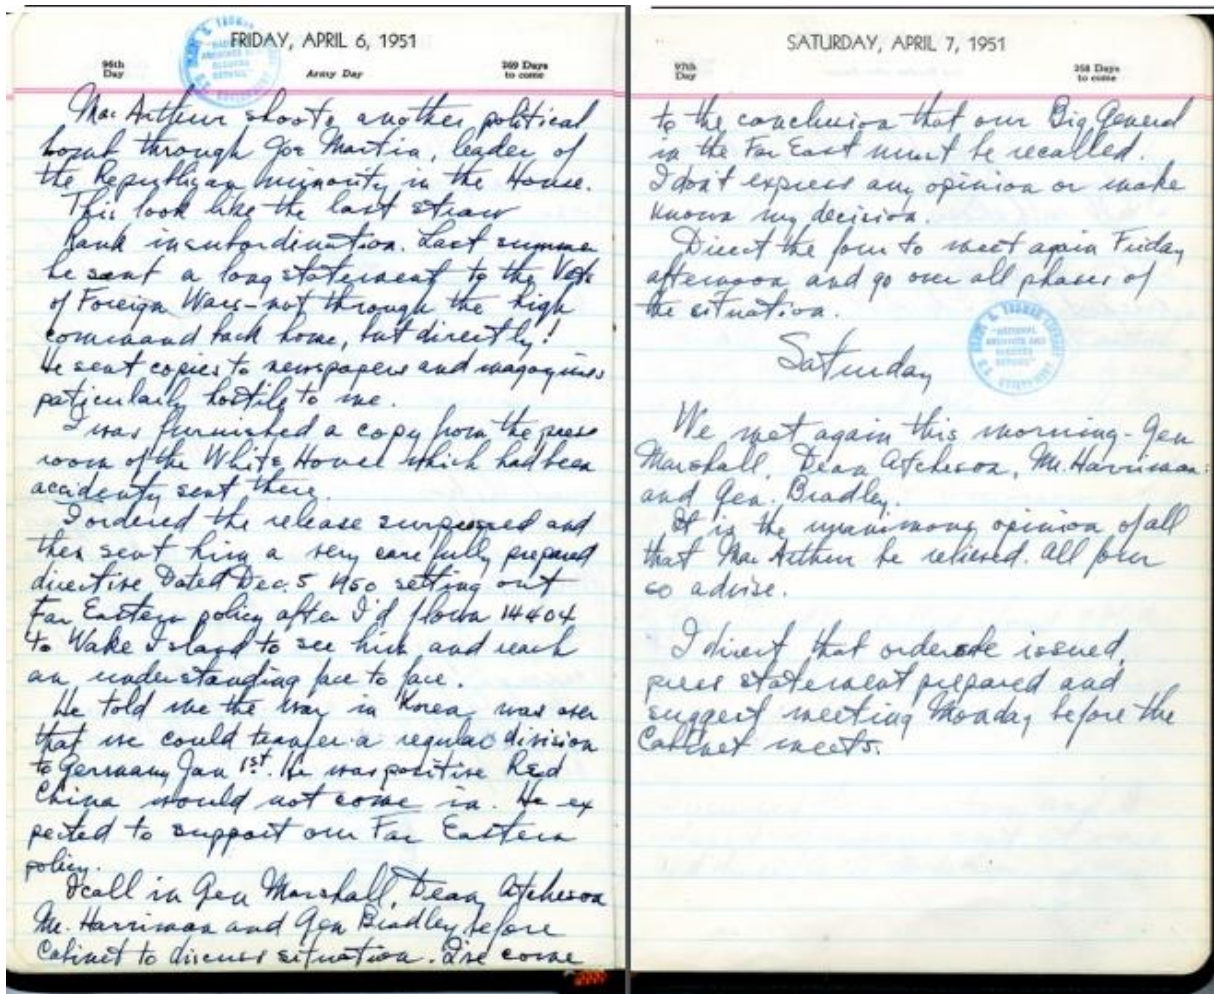 FRIDAY, APRIL 6, 1951
96th
Day
Army Day
269 Days
to come
MacArthur shoots another political
bomb through Joe Martin, leader of
the Republican minority in the House.
This look like the last straw
Rank insubordination. Last summer
he sent a long statement to the Vets
of Foreign Wars - not through the high
command back home, but directly!
He sent copies to newspapers and magazines
particularly hostile to me.
I was furnished a copy from the press
room of the White House which had been
accidenty sent there.
I ordered the release suppressed and
then sent him a very carefully prepared
directive Dated Dec. 5 1950 setting out
Far Eastern policy after I'd flown 14404
to Wake Island to see him and reach
an understanding face to face.
He told me the war in Korea was over
that we could transfer a regular division
to Germany Jan 1st. He was positive Red
China would not come in. He ex
pected to support our Far Eastern
policy.
I call in Gen Marshall, Dean Atcheson
Mr. Harriman and Gen Bradley before
Cabinet to discuss situation. I've come
SATURDAY, APRIL 7, 1951
97th
Day
268 Days
to come
to the conclusion that our Big General
in the Far East must be recalled.
I don't express any opinion or make
known my decision.
Direct the four to meet again Friday
afternoon and go over all phases of
the situation.
Saturday
We met again this morning - Gen
Marshall, Dean Atcheson, Mr. Harriman
and Gen. Bradley.
It is the unanimous opinion of all
that MacArthur be relieved. All four
so advise.
I direct that orders be issued,
press statement prepared and
suggest meeting Monday before the
Cabinet meets.